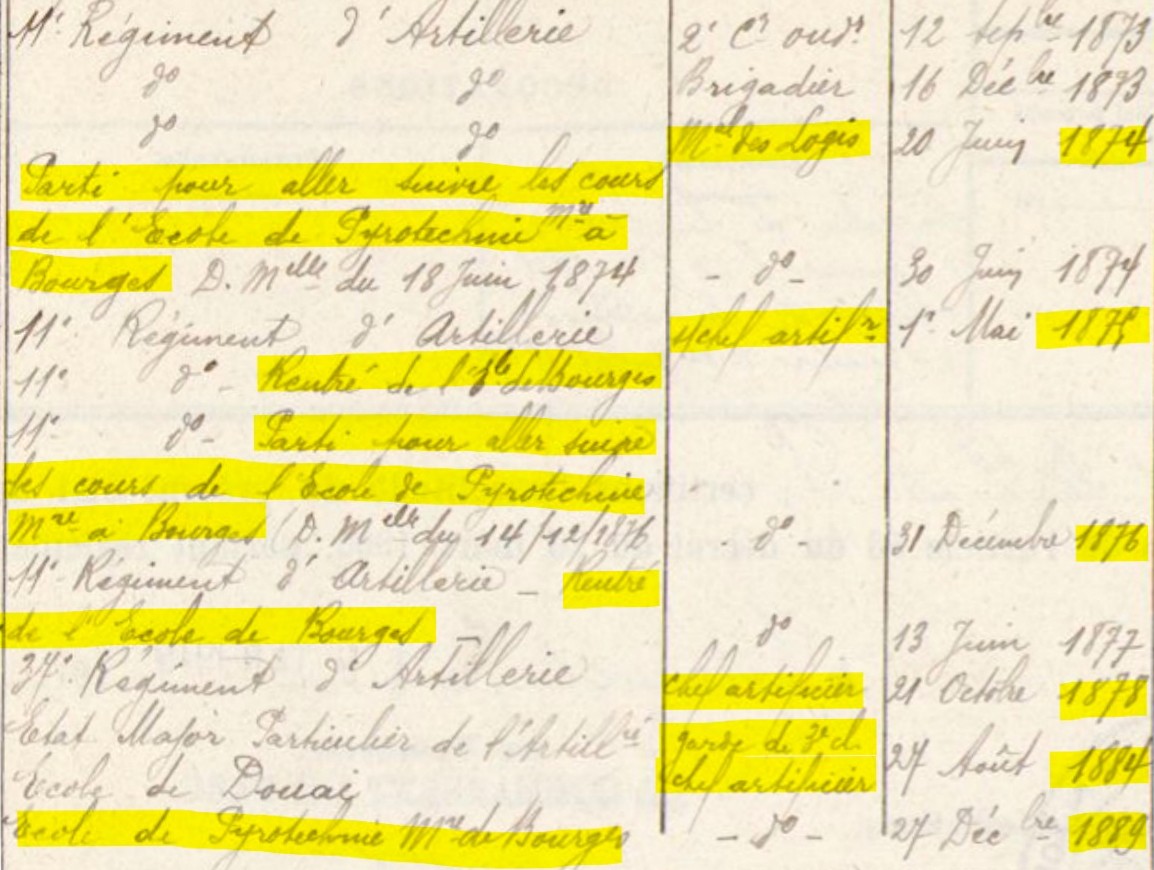 11e Régiment d'Artillerie 2e Cr ondr 12 Sepbre 1873
do do Brigadier 16 Décbre 1873
do do Mal des Logis 20 Juin 1874
Parti pour aller suivre les cours
de l'Ecole de Pyrotechnie Mre à
Bourges D. Melle du 18 Juin 1874 - do - 30 Juin 1874
11e Régiment d'Artillerie s/chef artifer 1er Mai 1875
11e do - Rentré de l'Ele de Bourges
11e do - Parti pour aller suivre
les cours de l'Ecole de Pyrotechnie
Mre à Bourges (D. Melle du 14/12/1876 do - 31 Décembre 1876
11e Régiment d'Artillerie - Rentré
de l'Ecole de Bourges - do 13 Juin 1877
37e Régiment d'Artillerie chef artificier 21 Octobre 1878
Etat Major Particulier de l'Artillrie garde de 3e cl
Ecole de Douai chef artificier 27 Août 1884
Ecole de Pyrotechnie Mre de Bourges - do - 27 Décbre 1889